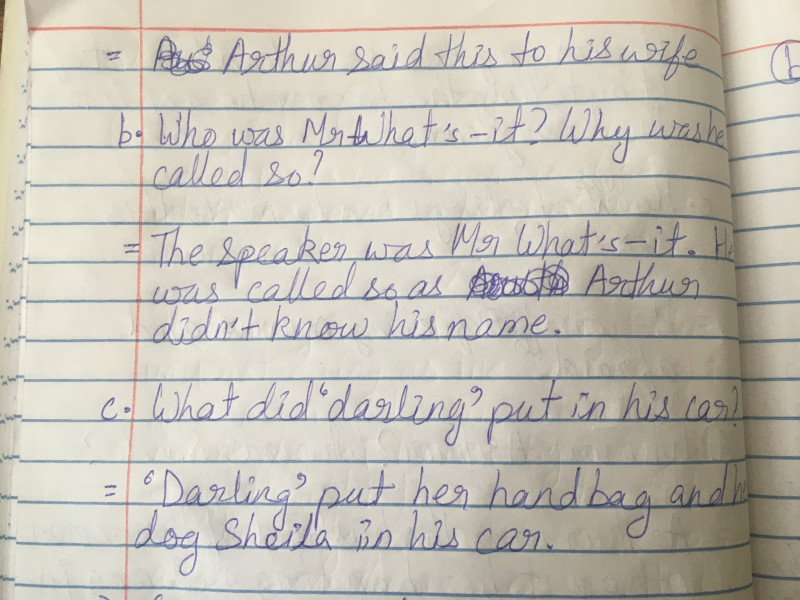 = Arthur said this to his wife
b. Who was Mr What's-it? Why was he
called so?
= The speaker was Mr What's-it. He
was called so as Arthur
didn't know his name.
c. What did 'darling' put in his car?
= 'Darling' put her handbag and
dog Sheila in his car.